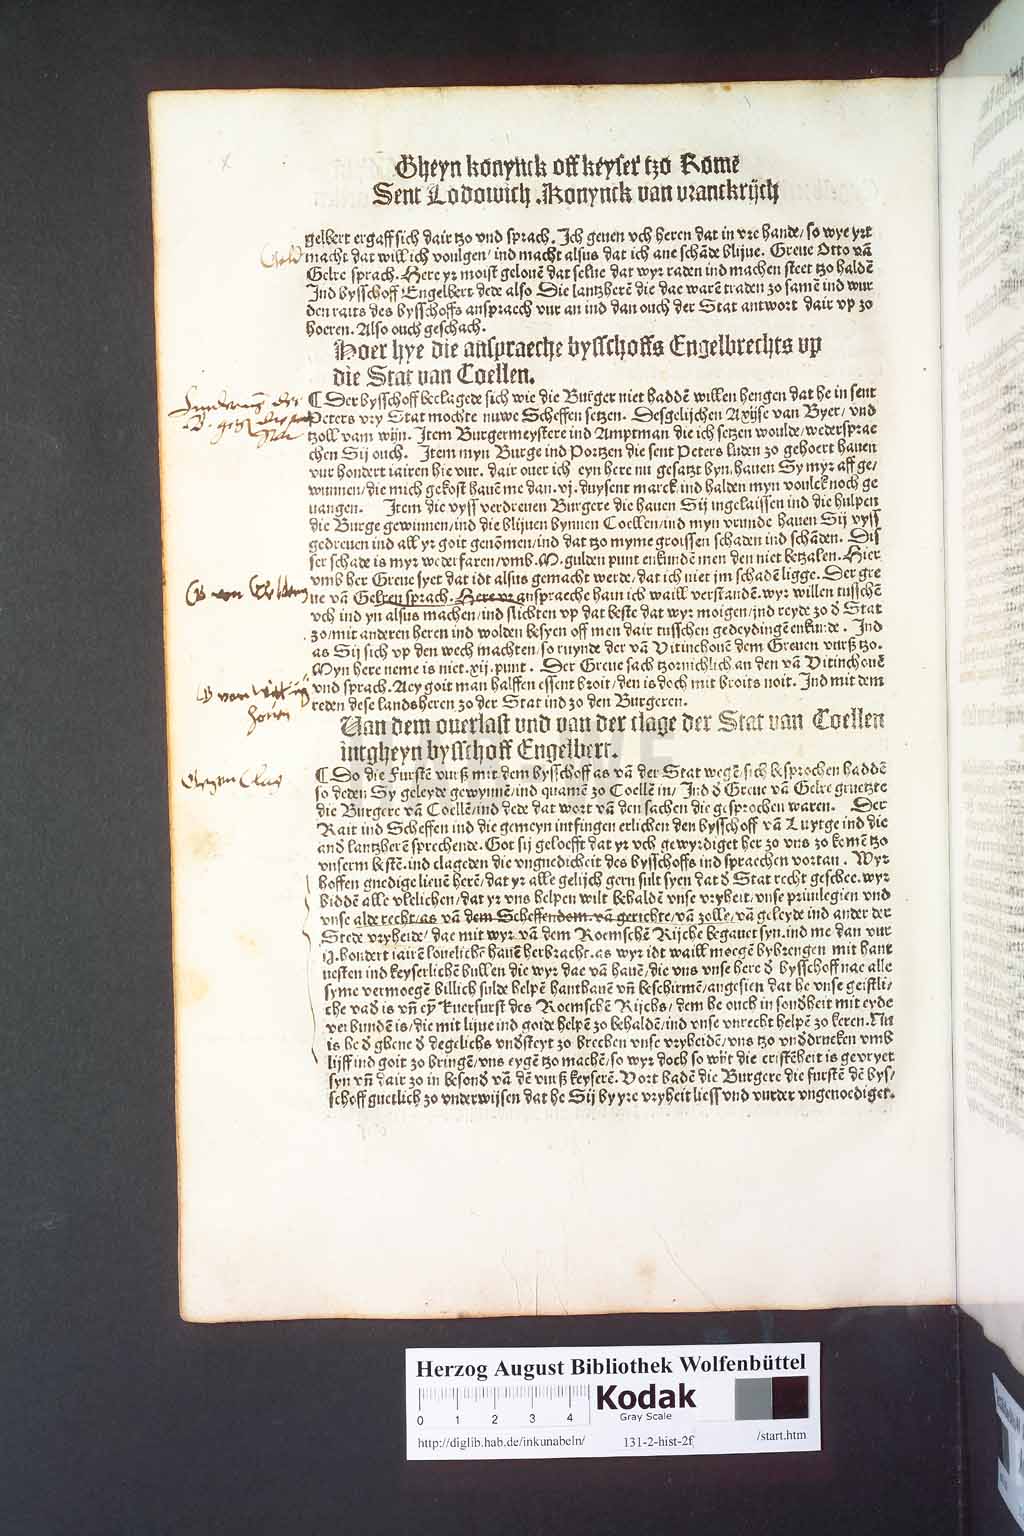 Gheyn konynck off keyser tzo Rome̅
Sent Lodowich .Konynck van vranckrijch
gelbert ergaff sich dair tzo vnd sprach. Ich geuen vch heren dat in vre hande/ so wye yrt
Geld macht dat will ich voulgen/ ind macht alsus dat ich ane scha̅de blijue. Greue Otto va̅
Gelre sprach. Here yr moist geloue̅ dat selue dat wyr raden ind machen steet tzo halde̅
Ind bysschoff Engelbert dede also Die lantzhere̅ die dae ware̅ traden zo same̅ ind wur
den raits des bysschoffs anspraech vur an ind dan ouch der Stat antwort dair vp zo
hoeren. Also ouch geschach.
Hoer hye die anspraeche bysschoffs Engelbrechts vp
die Stat van Coellen.
⸿ Der bysschoff beclagede sich wie die Burger niet hadde̅ willen hengen dat he in sent
Peters vry Stat mochte nuwe Scheffen setzen. Desgelijchen Axijse van Byer/ vnd
tzoll vam wijn. Item Burgermeystere ind Amptman die ich setzen woulde/ wedersprae
chen Sij ouch. Item myn Burge ind Portzen die sent Peters luden zo gehoert hauen
vur hondert iairen hie vur. dair ouer ich eyn here nu gesatzt byn. hauen Sy myr aff ge/
wunnen/ die mich gekost haue̅ me dan .vj. duysent marck. ind halden myn voulck noch ge
uangen. Item die vyss verdreuen Burgere die hauen Sij ingelaissen ind die hulpen
die Burge gewinnen/ ind die blijuen bynnen Coellen/ ind myn vrunde hauen Sij vyss
gedreuen ind all yr goit geno̅men/ ind dat tzo myme groissen schaden ind scha̅den. Dis
ser schade is myr wederfaren/ vmb .M. gulden punt enkunde̅ men den niet betzalen. Hier
vmb her Greue syet dat idt alsus gemacht werde/ dat ich niet jm schade̅ ligge. Der gre
G von Geldern ue va̅ Gelren sprach. Here vr anspraeche hain ich waill verstande̅. wyr willen tusschē
vch ind yn alsus machen/ ind slichten vp dat beste dat wyr moigen/ ind reyde zo d̅ Stat
zo/ mit anderen heren ind wolden besyen off men dair tusschen gedeydinge̅ enkunde. Ind
as Sij sich vp den wech machten/ so ruynde der va̅ Vitinchoue̅ dem Greuen vurß tzo.
Myn here neme is niet .xij. punt. Der Greue sach tzornichlich an den va̅ Vitinchoue̅
vnd sprach. Aey goit man halffen essent broit/ den is doch mit broits noit. Ind mit dem
reden dese landsheren zo der Stat ind zo den Burgeren.
Van dem ouerlast vnd van der clage der Stat van Coellen
intgheyn bysschoff Engelbert.
⸿ Do die Furste̅ vurß mit dem bysschoff as va̅ der Stat wege̅ sich besprochen hadde̅
so deden Sy geleyde gewynne̅/ ind quame̅ zo Coelle̅ in/ Ind d̅ Greue va̅ Gelre gruetzte
die Burgere va̅ Coelle̅/ ind dede dat wort va̅ den sachen die gesprochen waren. Der
Rait ind Scheffen ind die gemeyn intfingen erlichen den bysschoff va̅ Luytge ind die
and̅ lantzhere̅ sprechende. Got sij geloefft dat yr vch gewyrdiget her zo vns zo kome̅ tzo
vnserm beste̅. ind clageden die vngnedicheit des bysschoffs ind spraechen vortan. Wyr
hoffen gnedige lieue̅ here̅/ dat yr alle gelijch gern sult syen dat d̅ Stat recht geschee. wyr
bidde̅ alle vlelichen/ dat yr vns helpen wilt behalde̅ vnse vryheit/ vnse priuilegien vnd
vnse alde recht/ as va̅ dem Scheffendom. va̅ gerichte/ va̅ zolle/ va̅ geleyde ind ander der
Stede vryheide/ dae mit wyr va̅ dem Roemsche̅ Rijche begauet syn. ind me dan vur
hondert iaire̅ louelichē haue̅ herbracht. as wyr idt waill moege̅ bybrengen mit hant
uesten ind keyserliche̅ bullen die wyr dae va̅ haue̅/ die vns vnse here d̅ bysschoff nae alle
syme vermoege̅ billich sulde helpe̅ hanthaue̅ vn̅ beschirme̅/ angesien dat he vnse geistli/
che vad̅ is vn̅ ey̅ Kuerfurst des Roemsche̅ Rijchs/ dem he ouch in sond̅heit mit eyde
verbunde̅ is/ die mit lijue ind goide helpe̅ zo behalde̅/ ind vnse vnrecht helpe̅ zo keren. Nu
is he d̅ ghene d̅ degelichs vnd̅steyt zo brechen vnse vryheide̅/ vns tzo vnd̅drucken vmb
lijff ind goit zo bringe̅/ vns eyge̅ tzo mache̅/ so wyr doch so wijt die criste̅heit is gevryet
syn vn̅ dair zo in besond̅ va̅ de̅ vurß keysere̅. Vort bade̅ die Burgere die furste̅ de̅ bys/
schoff guetlich zo vnderwijsen dat he Sij by yre vryheit liess vnd vurder vngenoediget.
Herzog August Bibliothek Wolfenbüttel
0 1 2 3 4
Kodak
Gray Scale
http://diglib.hab.de/inkunabeln/ 131-2-hist-2f /start.htm